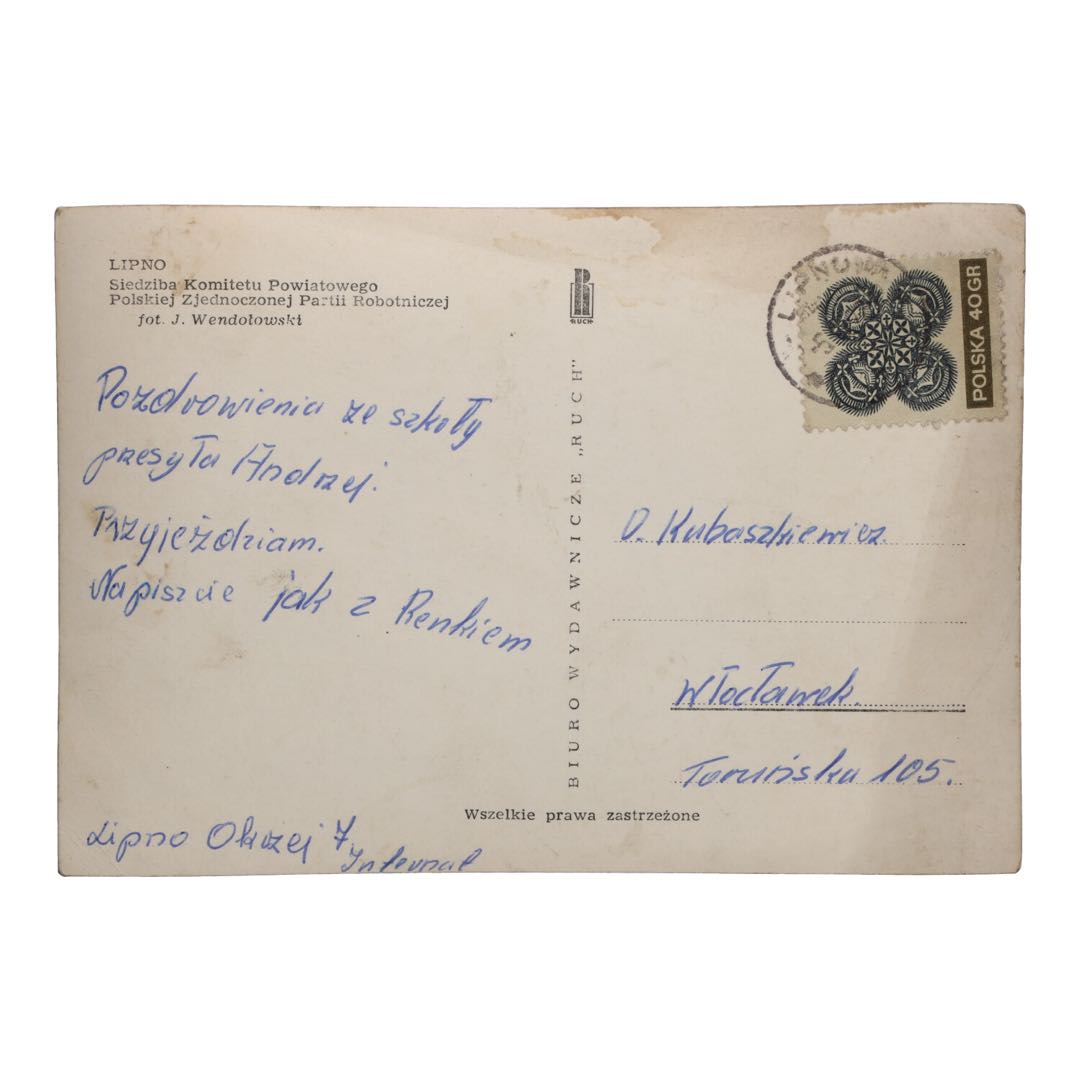 LIPNO
Siedziba Komitetu Powiatowego
Polskiej Zjednoczonej Partii Robotniczej
fot. J. Wendołowski
Pozdrowienia ze szkoły
przesyła Andrzej.
Przyjeżdziam.
Napiszcie jak z Renkiem
Lipno Okrzei 7
Internat
RUCH
BIURO WYDAWNICZE „RUCH"
Wszelkie prawa zastrzeżone
LIPNO
POLSKA 40 GR
D. Kubaszkiewicz.
Włocławek.
Toruńska 105.